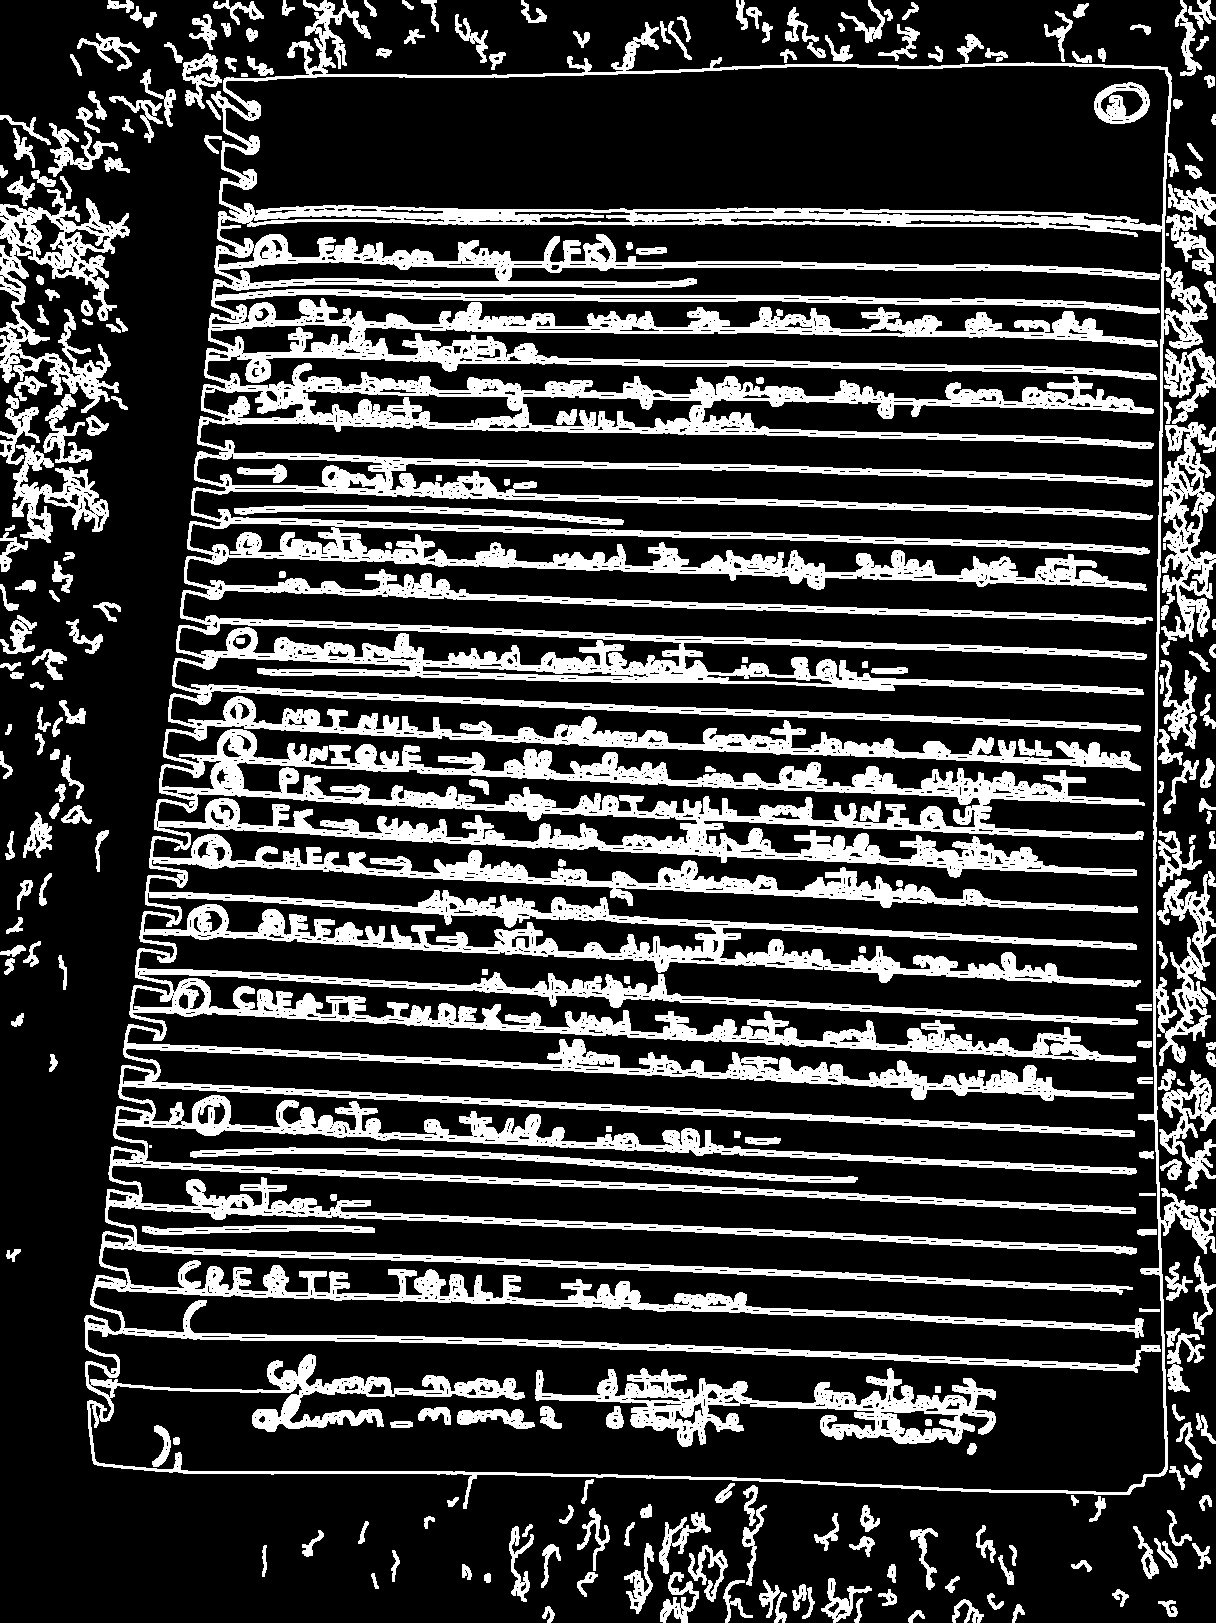 ② Foreign Key (FK) :-
• It is a column used to link two or more
tables together.
• Can have any no. of foreign key, can contain
duplicate and NULL values.
→ Constraints :-
• Constraints are used to specify rules for data
in a table.
• Commonly used constraints in SQL :-
① NOT NULL → a column cannot have a NULL value
② UNIQUE → all values in a col. are different
③ PK → combⁿ of NOT NULL and UNIQUE
④ FK → used to link multiple table together
⑤ CHECK → values in a column satisfies a
specific condⁿ
⑥ DEFAULT → sets a default value if no value
is specified.
⑦ CREATE INDEX → used to create and retrieve data
from the database very quickly
* ① Create a table in SQL :-
Syntax :-
CREATE TABLE table name
(
column_name1 datatype constraint,
column_name2 datatype constraint,
);